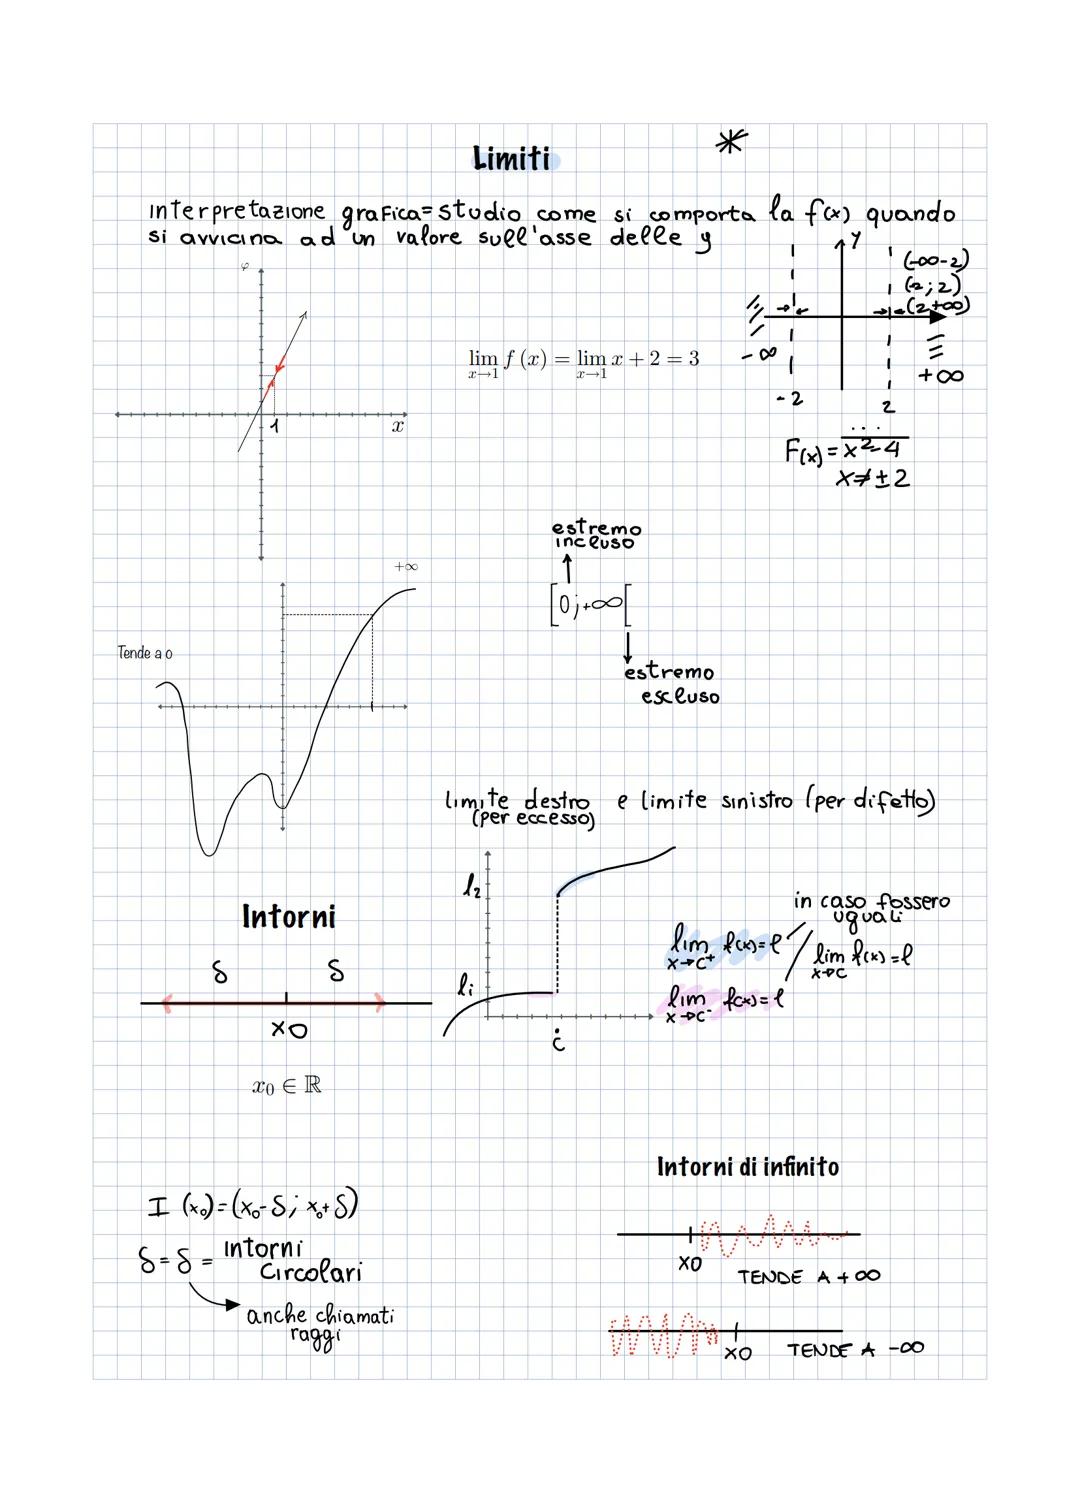 Limiti
*
interpretazione grafica= studio come si comporta la f(x) quando
si avvicina ad un valore sull'asse delle y
φ
x
1
lim f (x) = lim x + 2 = 3
x→1 x→1
y
(-∞-2)
(-2;2)
(2+∞)
-∞
+∞
-2
2
...
F(x) = x²-4
x≠±2
estremo
incluso
[0;+∞[
estremo
escluso
+∞
Tende a 0
limite destro e limite sinistro (per difetto)
(per eccesso)
l₂
li
c
lim f(x)=l
x→c⁺
lim f(x)=l
x→c⁻
in caso fossero
uguali
lim f(x)=l
x→c
Intorni
δ δ
x0
x₀ ∈ ℝ
I (x₀)=(x₀-δ; x₀+δ)
δ=δ = Intorni
Circolari
anche chiamati
raggi
Intorni di infinito
x0
TENDE A +∞
x0
TENDE A -∞